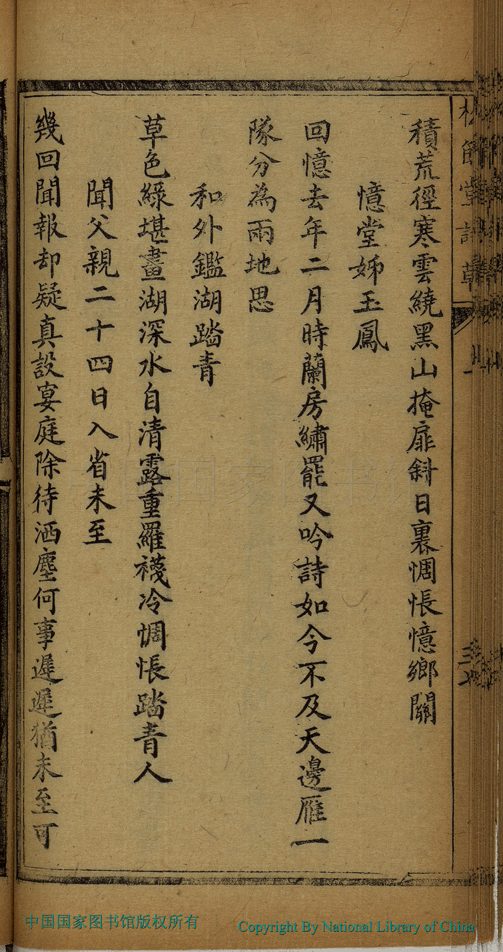 積荒徑寒雲繞黑山掩扉斜日裏惆悵憶鄉關
憶堂姊玉鳳
回憶去年二月時蘭房繡罷又吟詩如今不及天邊雁一
隊分為兩地思
和外鑑湖踏青
草色綠堪畫湖深水自清露重羅襪冷惆悵踏青人
聞父親二十四日入省未至
幾回聞報却疑真設宴庭除待洒塵何事遲遲猶未至可
中国国家图书馆版权所有
Copyright By National Library of China